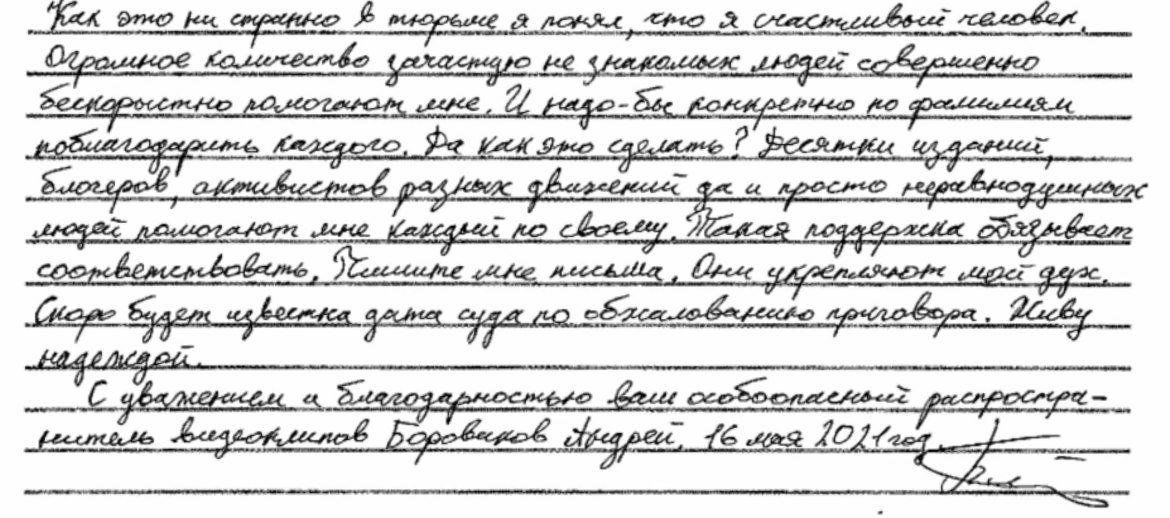 Как это ни странно в тюрьме я понял, что я счастливый человек.
Огромное количество зачастую не знакомых людей совершенно
бескорыстно помогают мне. И надо-бы конкретно по фамилиям
поблагодарить каждого. Да как это сделать? Десятки изданий,
блогеров, активистов разных движений да и просто неравнодушных
людей помогают мне каждый по своему. Такая поддержка обязывает
соответствовать. Пишите мне письма. Они укрепляют мой дух.
Скоро будет известна дата суда по обжалованию приговора. Живу
надеждой.
С уважением и благодарностью ваш особоопасный распростра-
нитель видеоклипов Боровиков Андрей. 16 мая 2021 год.